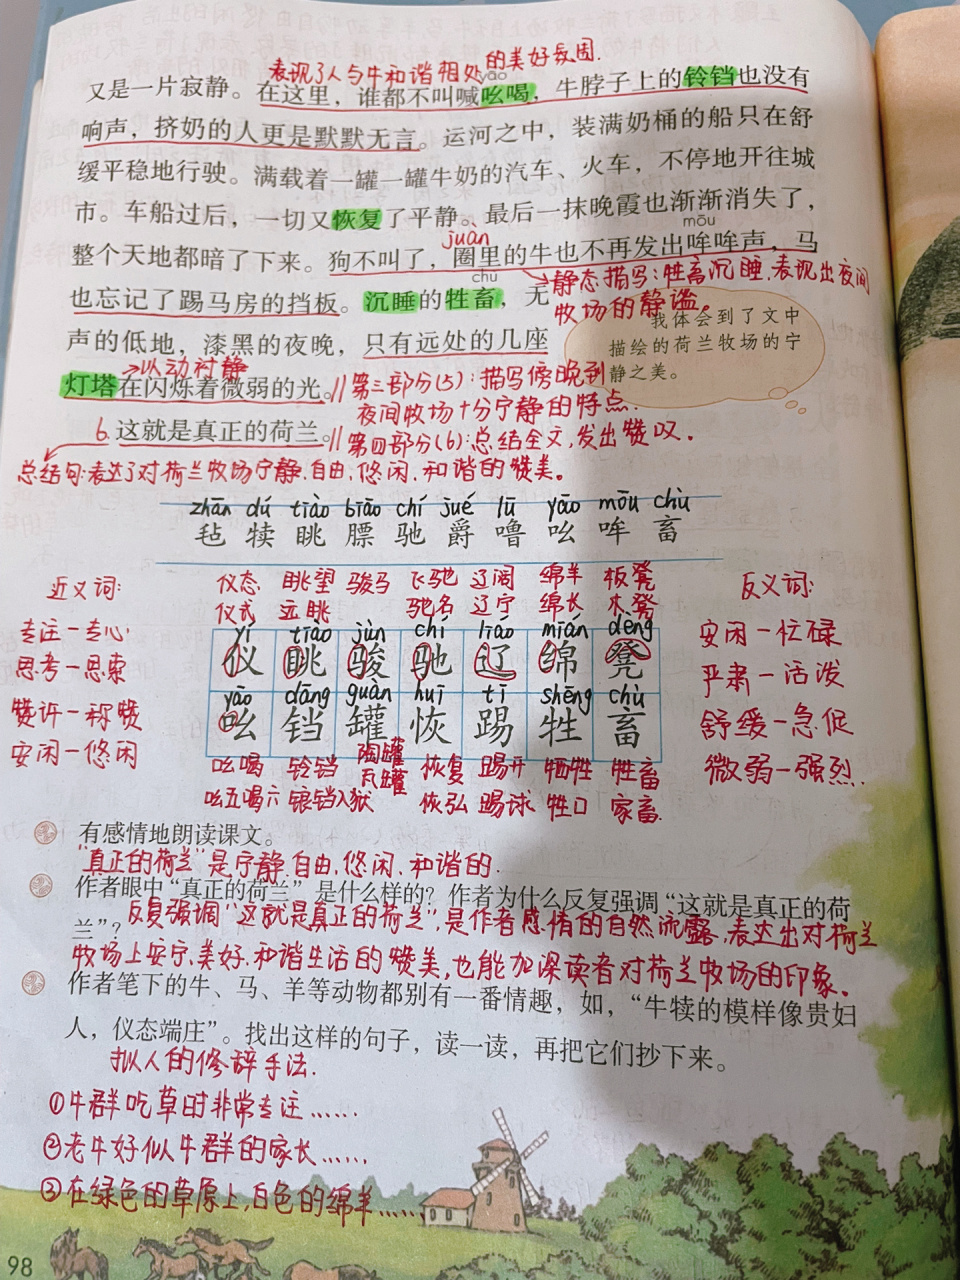 表现了人与牛和谐相处的美好氛围.
yāo
又是一片寂静。在这里，谁都不叫喊吆喝，牛脖子上的铃铛也没有
响声，挤奶的人更是默默无言。运河之中，装满奶桶的船只在舒
缓平稳地行驶。满载着一罐一罐牛奶的汽车、火车，不停地开往城
市。车船过后，一切又恢复了平静。最后一抹晚霞也渐渐消失了，
juàn mōu
整个天地都暗了下来。狗不叫了，圈里的牛也不再发出哞哞声，马
chù
也忘记了踢马房的挡板。沉睡的牲畜，无
→静态描写：牲畜沉睡，表现出夜间
牧场的静谧。
声的低地，漆黑的夜晚，只有远处的几座
我体会到了文中
描绘的荷兰牧场的宁
静之美。
→以动衬静
灯塔在闪烁着微弱的光。
//第三部分(5)：描写傍晚到
夜间牧场十分宁静的特点.
6.这就是真正的荷兰。
//第四部分(6)：总结全文，发出赞叹。
总结句：表达了对荷兰牧场宁静、自由、悠闲、和谐的赞美。
zhān dú tiào biāo chí jué lū yāo mōu chù
毡 犊 眺 膘 驰 爵 噜 吆 哞 畜
近义词：
专注—专心
思考—思索
赞许—称赞
安闲—悠闲
仪态 眺望 骏马 飞驰 辽阔 绵羊 板凳
仪式 远眺 驰名 辽宁 绵长 木凳
yí tiào jùn chí liáo mián dèng
仪 眺 骏 驰 辽 绵 凳
yāo dāng guàn huī tī shēng chù
吆 铛 罐 恢 踢 牲 畜
陶罐
吆喝 铃铛 瓦罐 恢复 踢开 牺牲 牲畜
吆五喝六 锒铛入狱 恢弘 踢球 牲口 家畜.
反义词：
安闲—忙碌
严肃—活泼
舒缓—急促
微弱—强烈.
有感情地朗读课文。
“真正的荷兰”是宁静、自由、悠闲、和谐的.
作者眼中“真正的荷兰”是什么样的？作者为什么反复强调“这就是真正的荷
兰”？
反复强调“这就是真正的荷兰”，是作者感情的自然流露，表达出对荷兰
牧场上安宁、美好、和谐生活的赞美，也能加深读者对荷兰牧场的印象。
作者笔下的牛、马、羊等动物都别有一番情趣，如，“牛犊的模样像贵妇
人，仪态端庄”。找出这样的句子，读一读，再把它们抄下来。
拟人的修辞手法.
①牛群吃草时非常专注……
②老牛好似牛群的家长……
③在绿色的草原上，白色的绵羊……
98